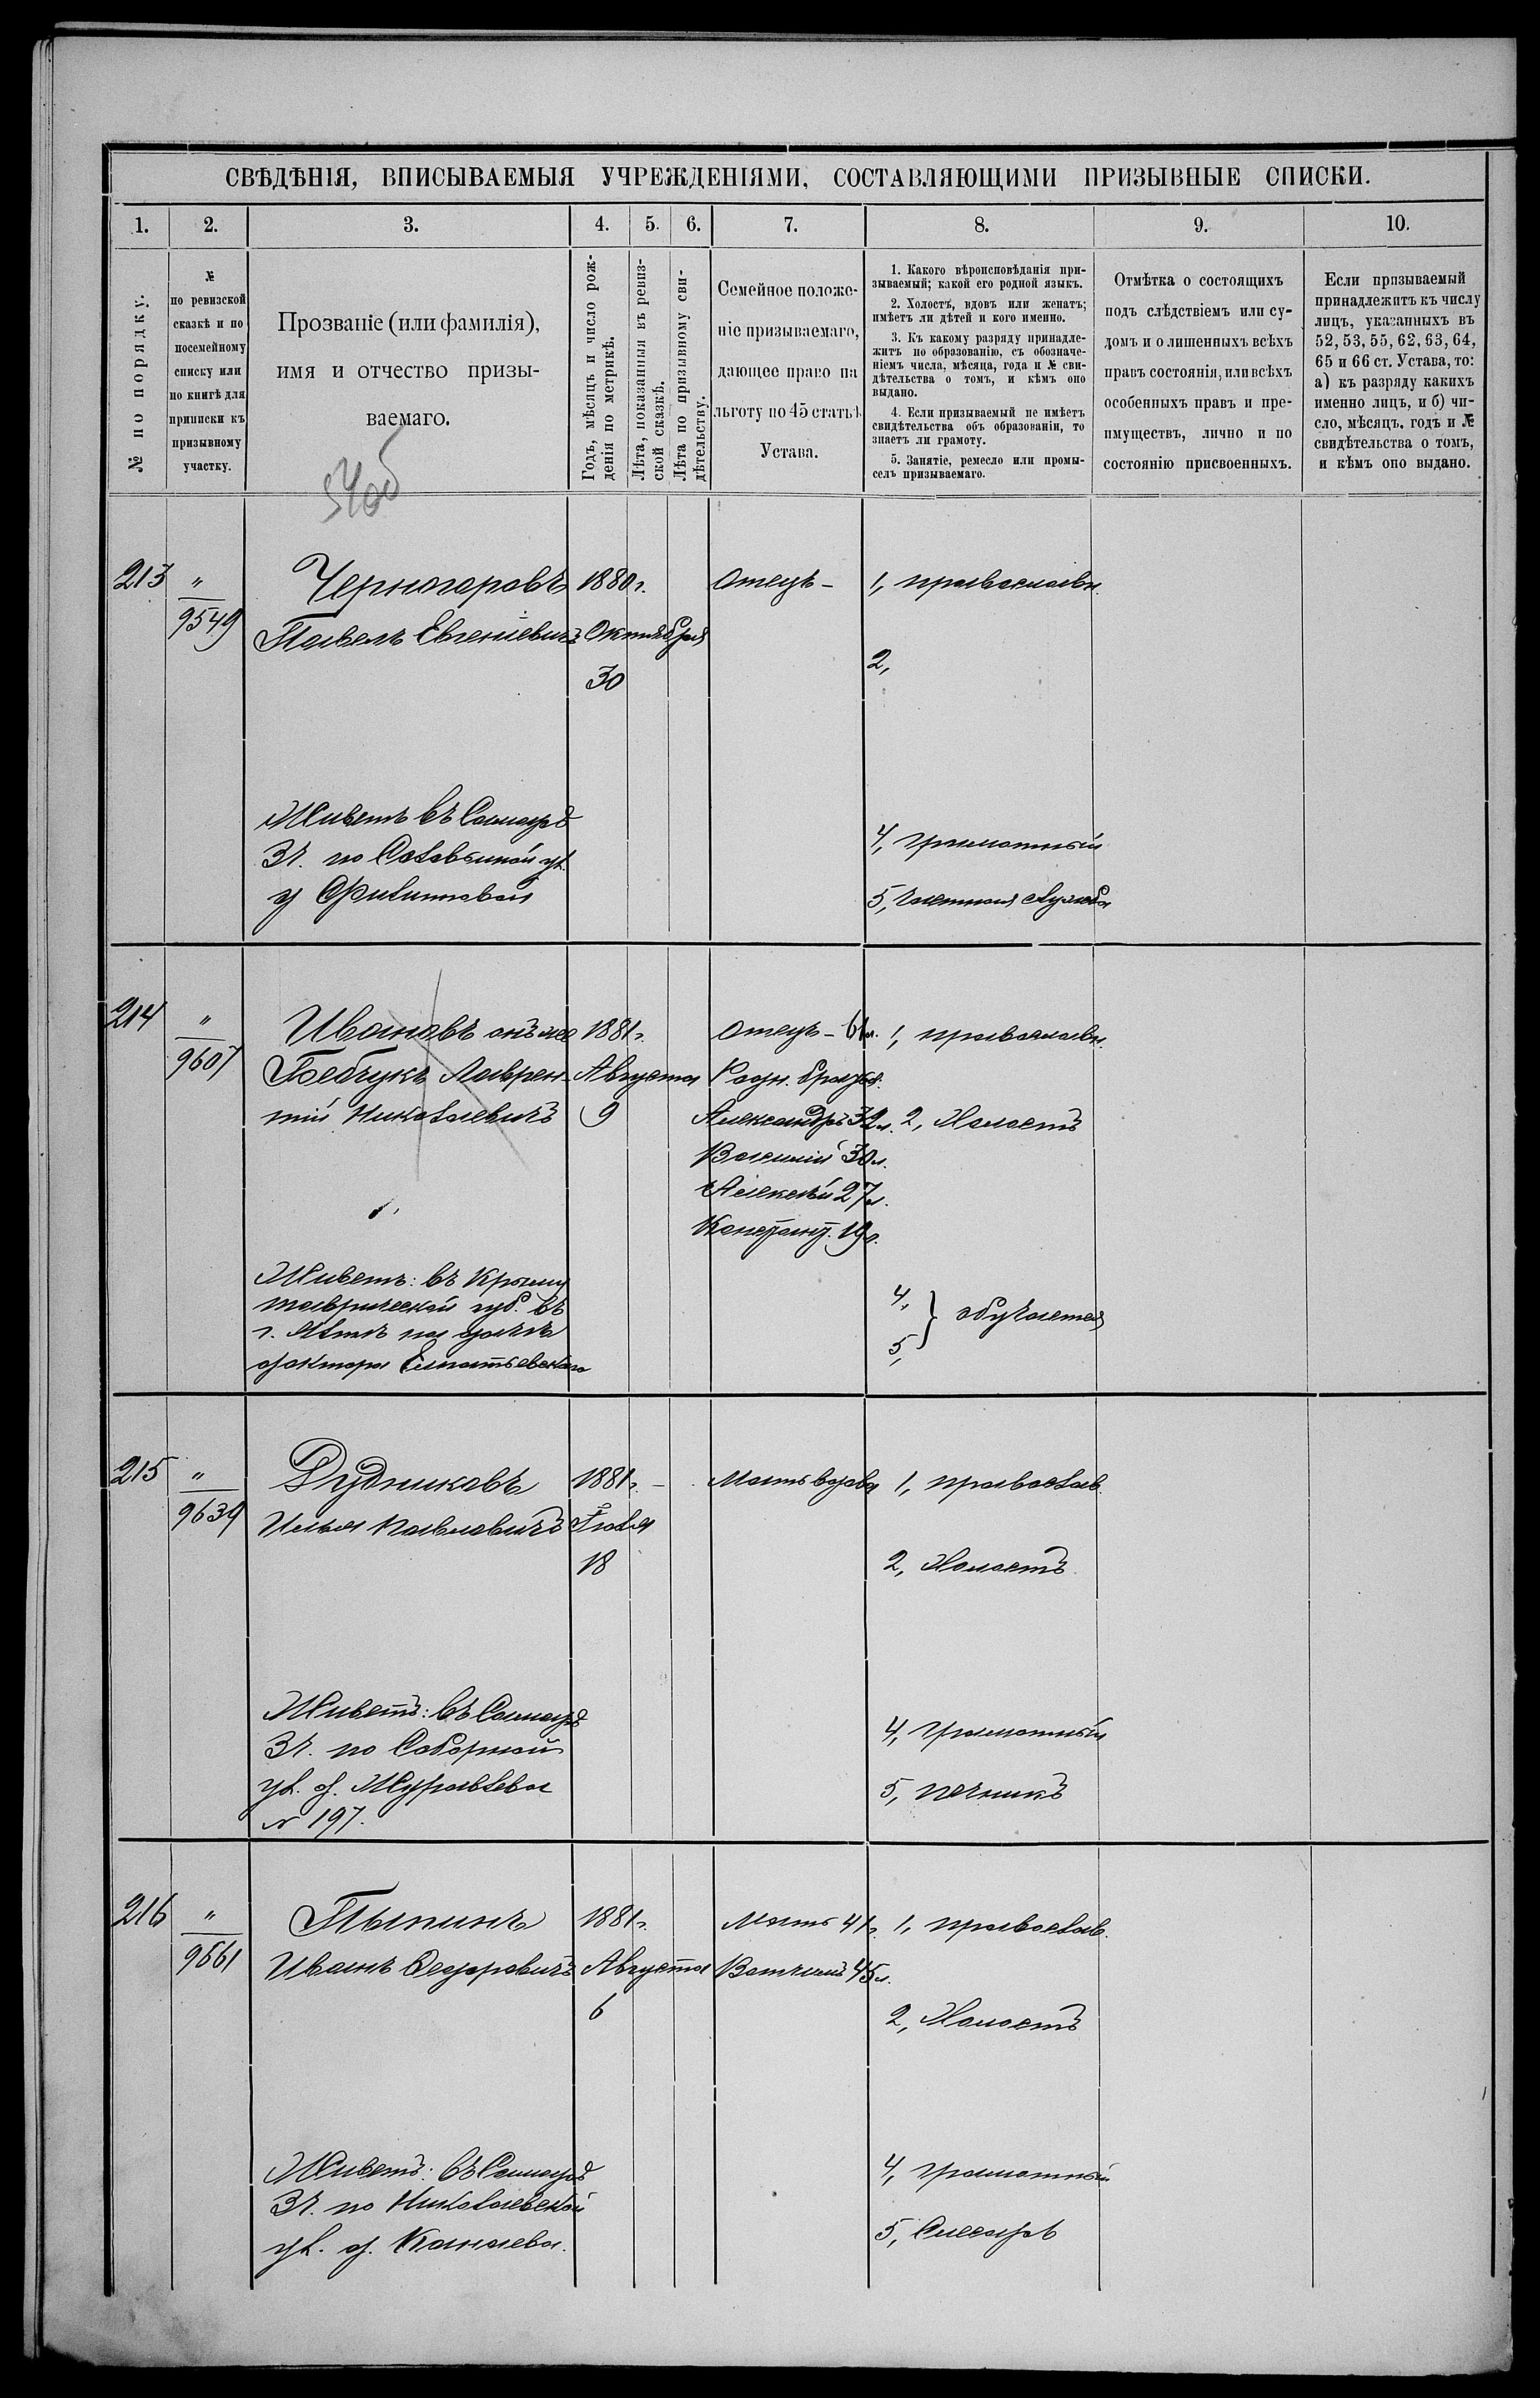 СВѢДѢНІЯ, ВПИСЫВАЕМЫЯ УЧРЕЖДЕНІЯМИ, СОСТАВЛЯЮЩИМИ ПРИЗЫВНЫЕ СПИСКИ.
1. 2. 3. 4. 5. 6. 7. 8. 9. 10.
№ по порядку.
№
по ревизской
сказкѣ и по
посемейному
списку или
по книгѣ для
приписки къ
призывному
участку.
Прозваніе (или фамилія),
имя и отчество призы-
ваемаго.
Годъ, мѣсяцъ и число рож-
денія по метрикѣ.
Лѣта, показанныя въ ревиз-
ской сказкѣ.
Лѣта по призывному сви-
дѣтельству.
Семейное положе-
ніе призываемаго,
дающее право на
льготу по 45 статьѣ
Устава.
1. Какого вѣроисповѣданія при-
зываемый; какой его родной языкъ.
2. Холостъ, вдовъ или женатъ;
имѣетъ ли дѣтей и кого именно.
3. Къ какому разряду принадле-
житъ по образованію, съ обозначе-
ніемъ числа, мѣсяца, года и № сви-
дѣтельства о томъ, и кѣмъ оно
выдано.
4. Если призываемый не имѣетъ
свидѣтельства объ образованіи, то
знаетъ ли грамоту.
5. Занятіе, ремесло или промы-
селъ призываемаго.
Отмѣтка о состоящихъ
подъ слѣдствіемъ или су-
домъ и о лишенныхъ всѣхъ
правъ состоянія, или всѣхъ
особенныхъ правъ и пре-
имуществъ, лично и по
состоянію присвоенныхъ.
Если призываемый
принадлежитъ къ числу
лицъ, указанныхъ въ
52, 53, 55, 62, 63, 64,
65 и 66 ст. Устава, то:
а) къ разряду какихъ
именно лицъ, и б) чи-
сло, мѣсяцъ, годъ и №
свидѣтельства о томъ,
и кѣмъ оно выдано.
213 " Черногоровъ 1880 г. отецъ - 1, православн.
9549 Павелъ Евгеніевичъ Октября
30
2,
Живетъ въ Самарѣ
3 ч. по Соловьиной ул.
у Филипповой
4, грамотный
5, частная служба
214 " Ивановъ онъ же 1881 г. отецъ - 61 л. 1, православн.
9607 Бебчукъ Лаврен- Августа Родн. братья.
тій Николаевичъ 9 Александръ 32 л. 2, Холостъ
Василій 30 л.
Алексѣй 27 л.
Констант. 19 л.
Живетъ: въ Крыму
таврической губ. въ
г. Ялтѣ на дачѣ
доктора Елпатьевскаго
4,
5, } обучается
215 " Дудниковъ 1881 г. - Мать вдова 1, православ.
9639 Илья Павловичъ Іюля
18
2, Холостъ
Живетъ: въ Самарѣ
3 ч. по Соборной
ул. д. Журавлева
№ 197.
4, грамотный
5, печникъ
216 " Тыпинъ 1881 г. Мать 41 г. 1, православ.
9661 Иванъ Федоровичъ Августа Вотчимъ 45 л.
6
2, Холостъ
Живетъ: въ Самарѣ
3 ч. по Николаевской
ул. д. Канаева.
4, грамотный
5, Слесарь